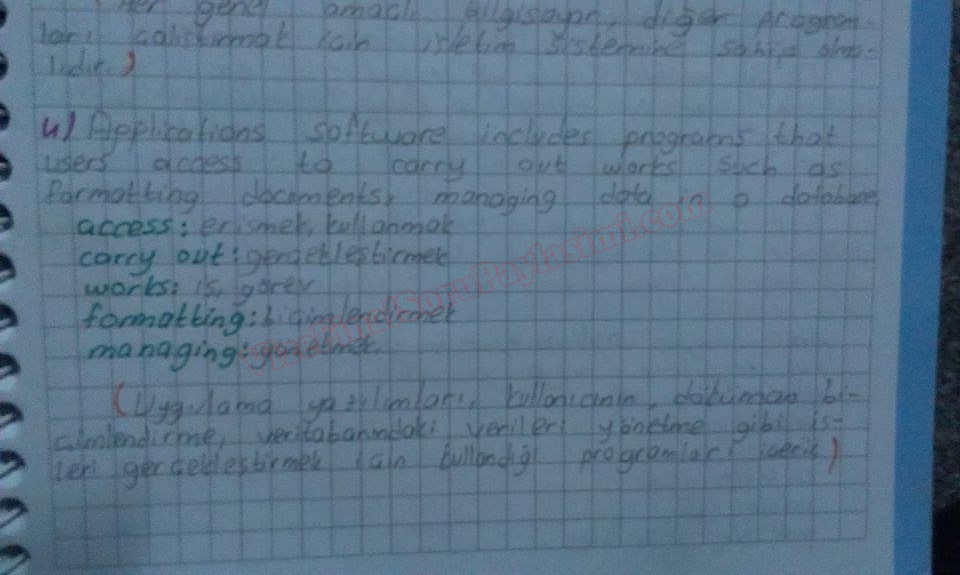 Her genel amaçlı bilgisayar, diğer program-
ları çalıştırmak için işletim sistemine sahip olma-
lıdır.)
4) Applications software includes programs that
users access to carry out works such as
formatting documents, managing data in a database
access: erişmek, kullanmak
carry out: gerçekleştirmek
works: iş, görev
formatting: biçimlendirmek
managing: yönetmek.
(Uygulama yazılımları, kullanıcının, doküman bi-
çimlendirme, veritabanındaki verileri yönetme gibi iş-
leri gerçekleştirmek için kullandığı programları içerir)